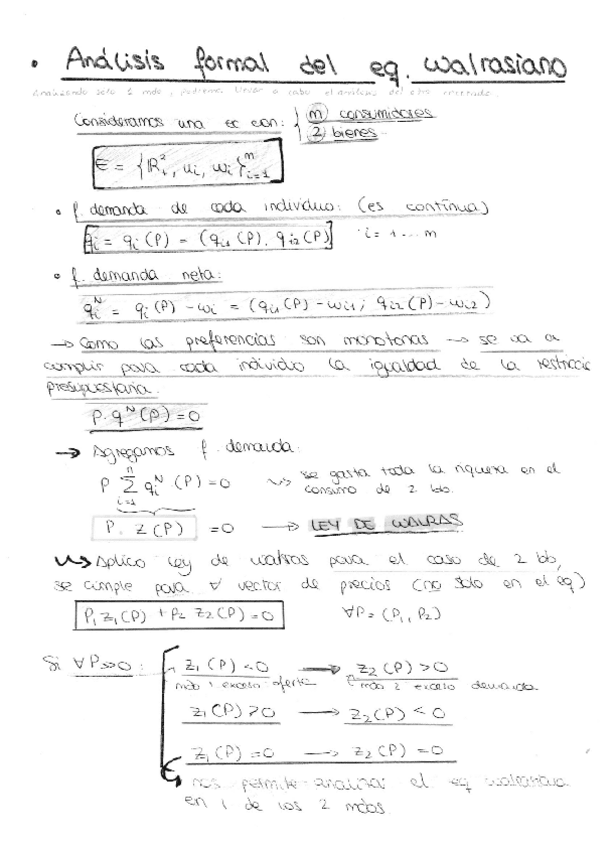 • Análisis formal del eq. walrasiano
Analizando solo 1 mdo, podremos llevar a cabo el análisis del otro mercado.
Consideramos una ec con: { m consumidores
2 bienes
E = {ℝ²ᵢ, uᵢ, wᵢ}ᵐᵢ₌₁
• f. demanda de cada individuo: (es contínua)
qᵢ = qᵢ(P) = (qᵢ₁(P), qᵢ₂(P)) i = 1 ... m
• f. demanda neta:
qᵢᴺ = qᵢ(P) - wᵢ = (qᵢ₁(P) - wᵢ₁; qᵢ₂(P) - wᵢ₂)
→ Como las preferencias son monotonas → se va a
cumplir para cada individuo la igualdad de la restricc
presupuestaria.
P · qᴺ(P) = 0
→ Agregamos f. demanda:
P Σⁿᵢ₌₁ qᵢᴺ (P) = 0 ↝ se gasta toda la riqueza en el
consumo de 2 bb.
P · Z(P) = 0 → LEY DE WALRAS
↝ Aplico ley de walras para el caso de 2 bb,
se cumple para ∀ vector de precios (no solo en el eq)
P₁Z₁(P) + P₂ Z₂(P) = 0 ∀P = (P₁, P₂)
Si ∀P>>0: Z₁(P) < 0 → Z₂(P) > 0
mdo 1 exceso oferta mdo 2 exceso demanda
Z₁(P) > 0 → Z₂(P) < 0
Z₁(P) = 0 → Z₂(P) = 0
nos permite analizar el eq walrasiano
en 1 de los 2 mdos.